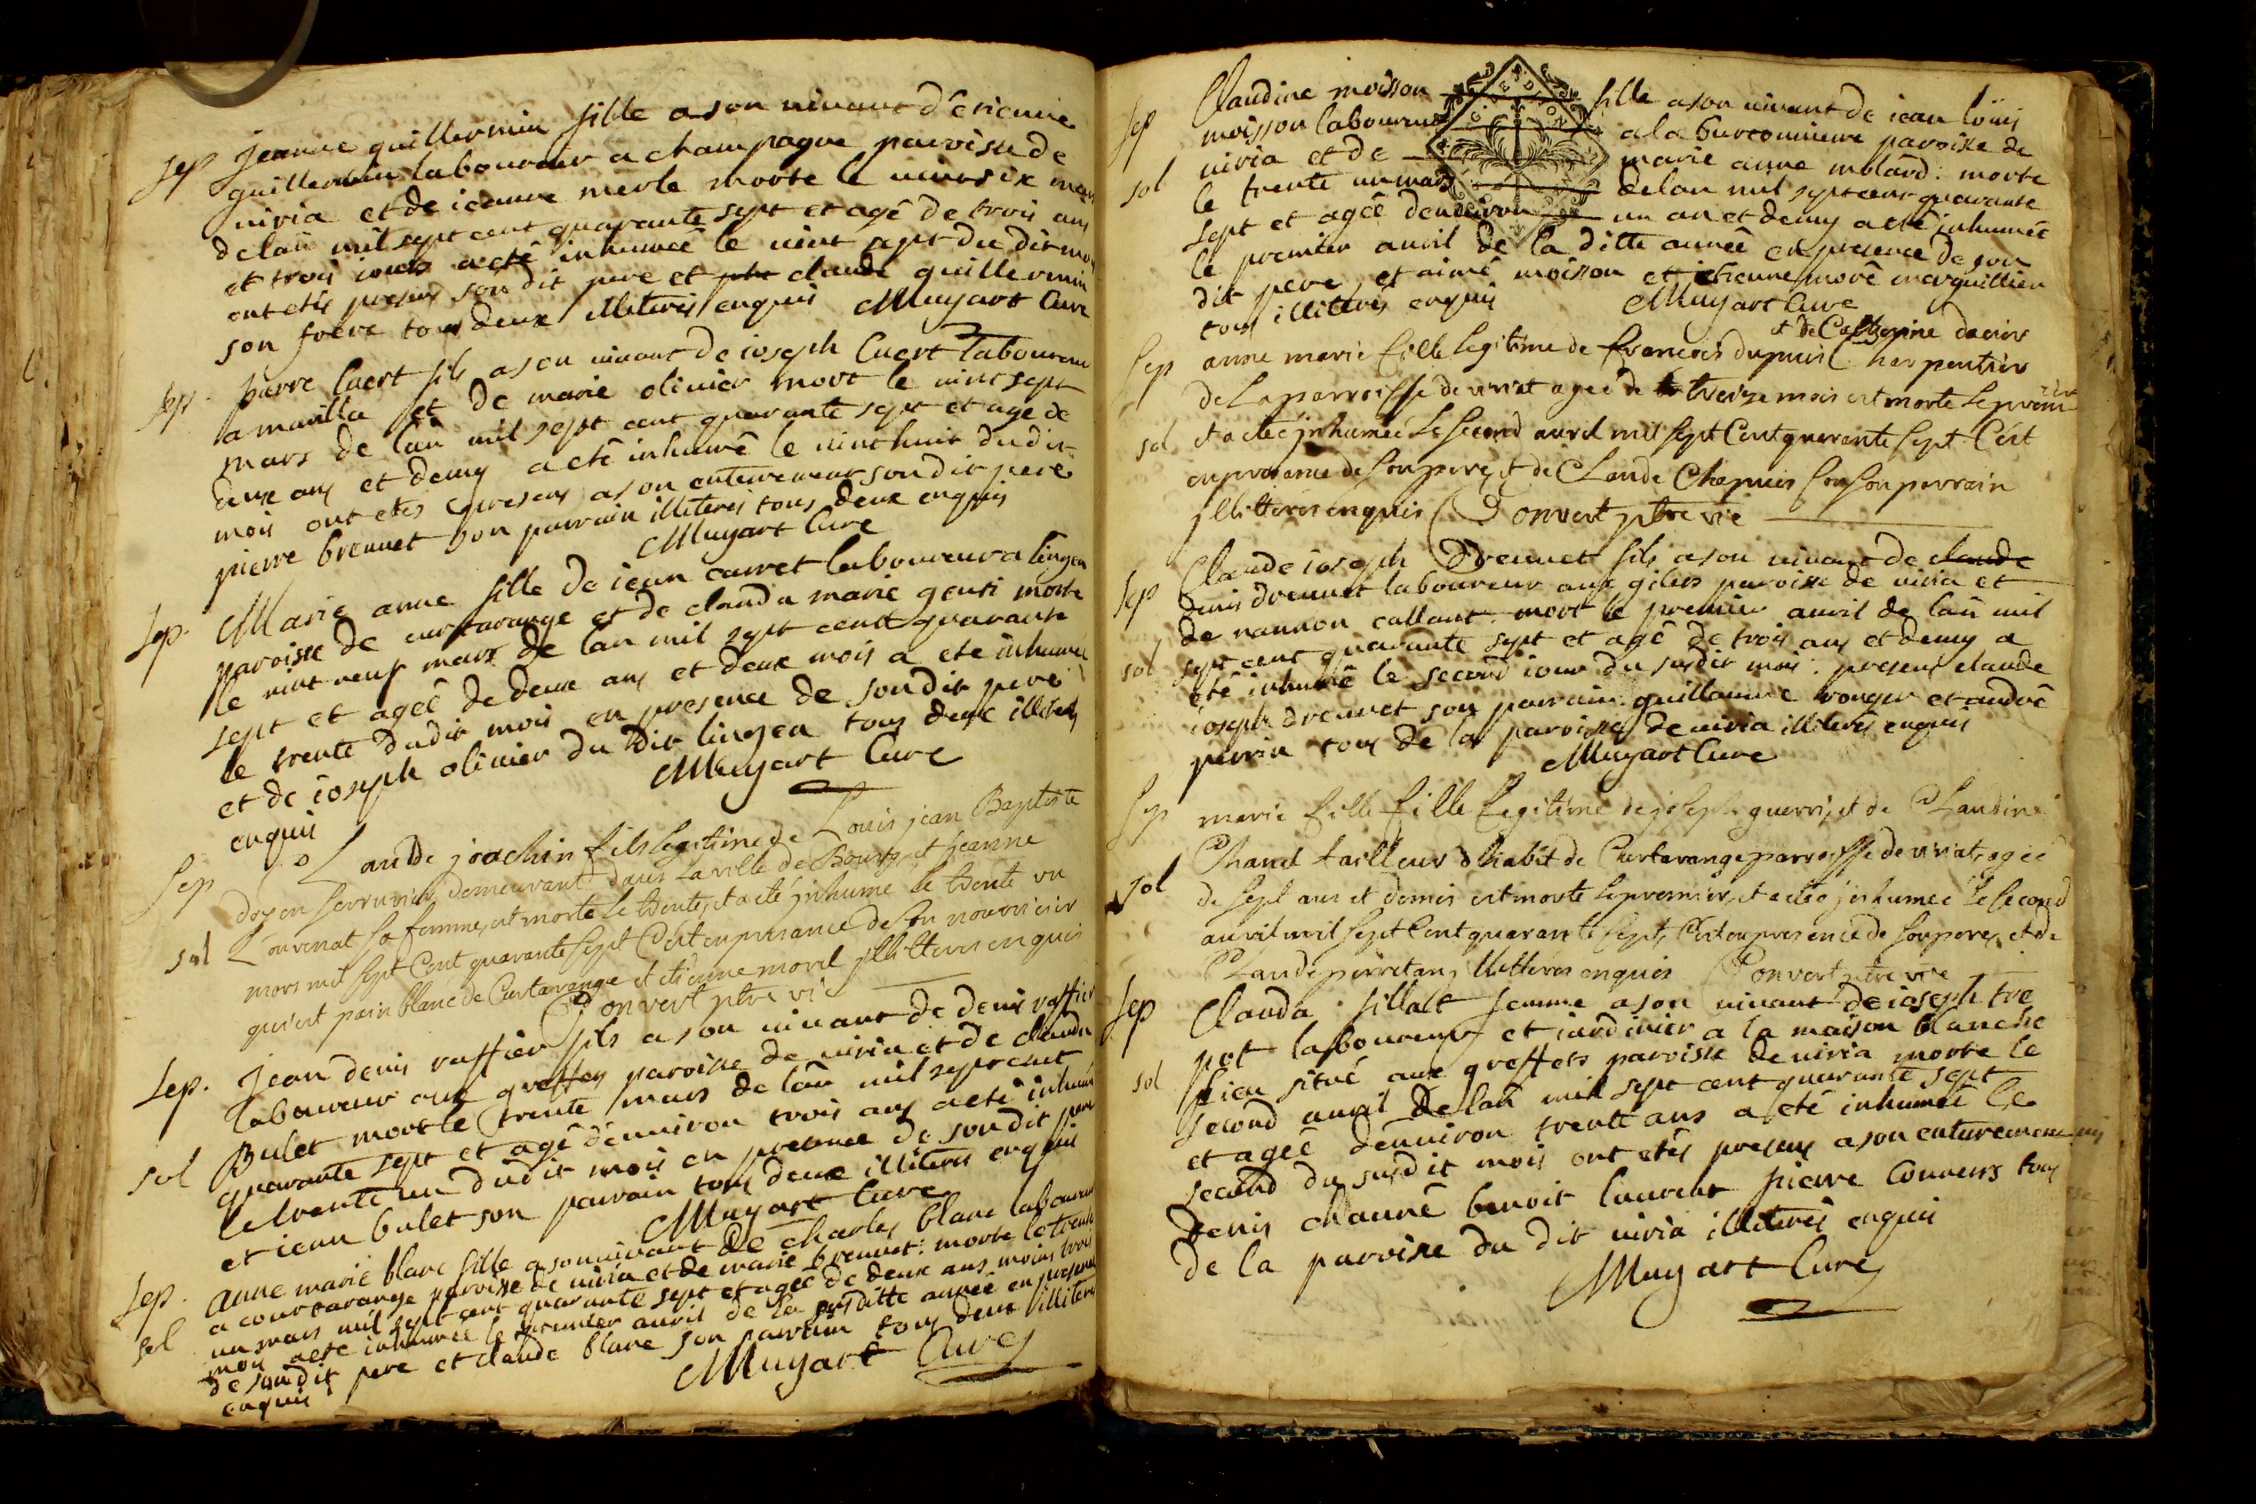 Sep Jeanne guillermin fille a son vivant d'étienne
guillermin laboureur a champagne paroisse de
viria et de jeanne merle morte le vint six mars
de lan mil sept cent quarante sept et agê de trois ans
et trois jours a eté inhumeê le vint sept du dit mois
ont etés presens son dit pere et claude guillermin
son frere tous deux illiterés enquis Muyart Cure
Sep. pierre Cuert fils a son vivant de joseph Cuert laboureur
a mavilla et de marie olivier mort le vint sept
mars de lan mil sept cent quarante sept et age de
deux ans et demy a eté inhumé le vint huit du dit
mois ont etés presens a son enterement son dit pere
pierre brevnet son parrain illiterés tous deux enquis
Muyart Cure
Sep. Marie anne fille de jean carret laboureur a lingea
paroisse de curtarange et de clauda marie genti morte
le vint neuf mars de lan mil sept cent quarante
sept et ageê de deux ans et deux mois a eté inhumeé
le trente dudit mois en presence de son dit pere
et de joseph olivier du dit lingea tous deux illiterés
enquis Muyart Cure
Sep Claude joachin fils legitime de Louis jean Baptiste
doyen serrurier demeurant dans la ville de Bourg, et jeanne
sol Convenat sa femme, est morte le trente, et a eté inhumé le trente un
mars mil sept Cent quarante sept C'est en presance de son nourricier
qui est pain blanc de Curtarange et etienne morel jllitteres enquis
Convert ptre vie
Sep. Jean denis ruffier fils a son vivant de denis ruffier
laboureur aux greffets paroisse de viria et de clauda
sol Bulet mort le trente mars de lan mil sept cent
quarante sept et agê d'environ trois ans a eté inhumé
le trente un dudit mois en presence de son dit pere
et jean bulet son parrain tous deux illiterés enquis
Muyart Cure
Sep. anne marie blanc fille a son vivant de charles blanc laboureur
a courtarange paroisse de viria et de marie brevnet: morte le trente
sol un mars mil sept cent quarante sept et ageê de deux ans moins trois
mois a eté inhumeé le premier avril de la susditte année en presence
de son dit pere et claude blanc son parrain tous deux illiterés
enquis Muyart Cure
Sep Claudine moisson fille a son vivant de jean loüis
moisson laboureur a la Curtonniere paroisse de
sol viria et de marie anne molard: morte
le trente un mars de lan mil sept cent quarante
sept et ageê d'environ un an et demy a eté inhumeé
le premier avril de la ditte annee en presence de son
dit pere, et aimé moisson et étienne morê marguillier
tous illiterés enquis Muyart Cure
et de Catherine daviers
Sep anne marie fille legitime de francois dupuis Charpentier
de La parroisse de viriat agee de treize mois est morte le premier
sol et a eteé jnhumeé Le second avril mil sept Cent quarante sept C'est
en presence de son pere, et de Claude Chapuis son parrain
jllitteres enquis Convert ptre vie
Sep Claude joseph Drevnet fils a son vivant de claude
denis drevnet laboureur aux gilets paroisse de viria et
de nannon callant: mort le premier avril de lan mil
sol sept cent quarante sept et agê de trois ans et demy a
été inhumê le second jour du susdit mois: presens claude
joseph drevnet son parrain guillaume ronger et andrê
perrin tous de la paroisse de viria illiterés enquis
Muyart Cure
Sep marie fille fille Legitime de joseph guerri, et de Claudine
Chanel tailleur d'habit de Curtarange parroisse de viriat, ageé
sol de sept ans et demis est morte le premier, et a eteé jnhumeé Le second
avril mil sept Cent quarante sept, C'est en presence de son pere, et de
Claude perretan jllitterés enquis Convert ptre vie
Sep Clauda fillalt femme a son vivant de joseph tre
pot laboureur et jardinier a la maison blanche
sol lieu situé aux greffets paroisse de viria morte le
second avril de lan mil sept cent quarante sept
et ageé d'environ trente ans a eté inhumeé le
second du susdit mois ont etés presens a son enterement
denis chaunê benoit laurent pierre Convers tous
de la paroisse du dit viria illiterés enquis
Muyart Cure